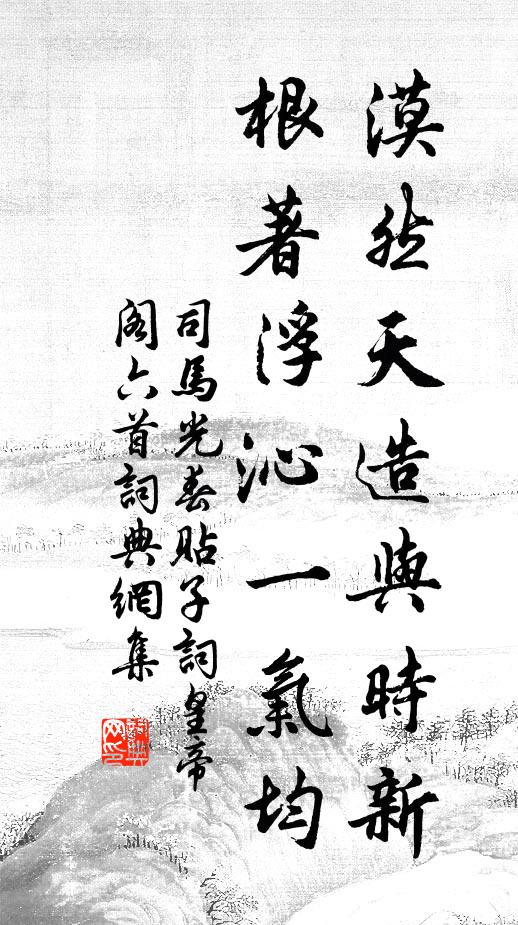 漠然天造與時新
根著浮沁一氣均
司馬光春貼子詞皇帝
閣六首詞典網集